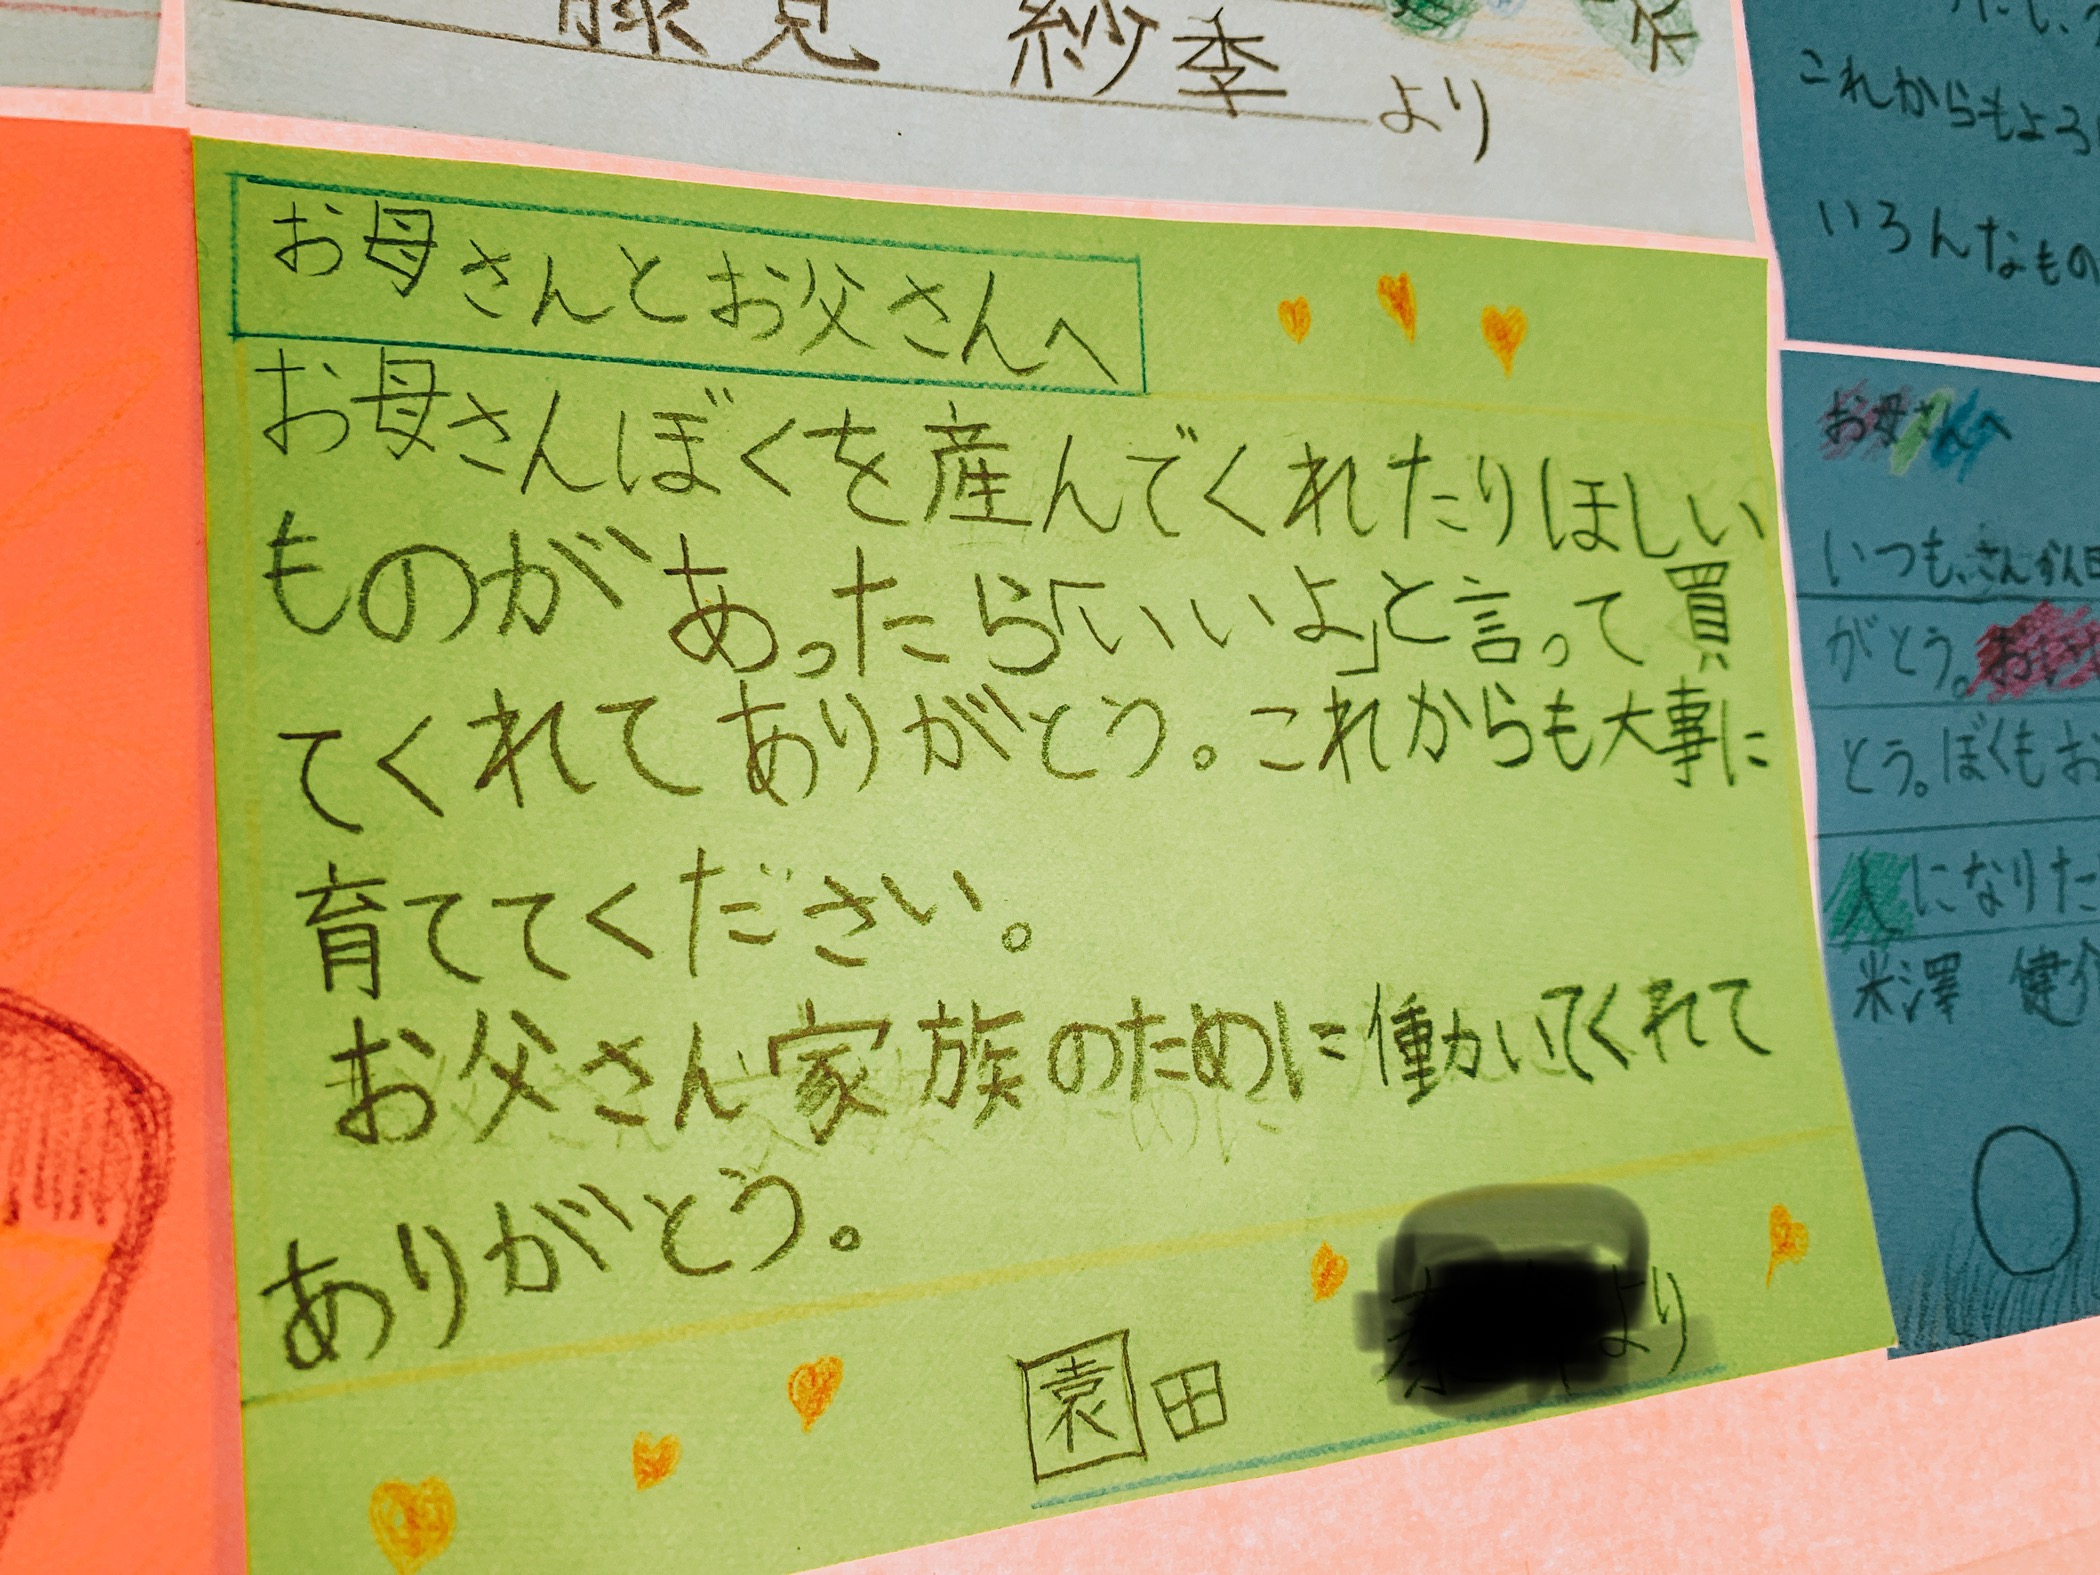 紗季より
お母さんとお父さんへ
お母さんぼくを産んでくれたりほしい
ものがあったら「いいよ」と言って買
てくれてありがとう。これからも大事に
育ててください。
お父さん家族のために働かいてくれて
ありがとう。
園田
より
これからもよろ
いろんなもの
お母さんへ
いつも、さんかん日
がとう。
とう。ぼくもお
人になりた
米澤 健介